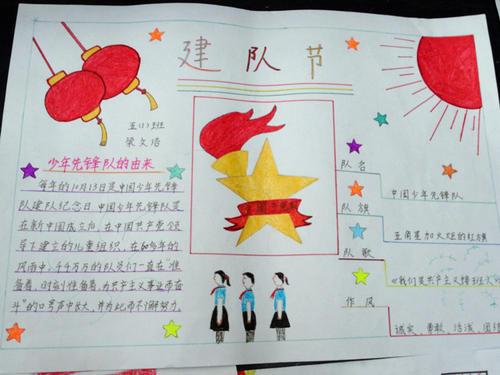 建队节
五(1)班
梁文浩
少年先锋队的由来
每年的10月13日是中国少年先锋
队建队纪念日,中国少年先锋队是
在新中国成立后,在中国共产党领
导下建立的儿童组织,在如今年的
风雨中,千千万万的队员们一直在"准
备着,时刻准备着,为共产主义事业而奋
斗"的口号声中长大,并为此而不懈努力。
队名
中国少年先锋队
队旗
五角星加火炬的红旗
队歌
《我们是共产主义接班人》
作风
诚实、勇敢、活泼、团结